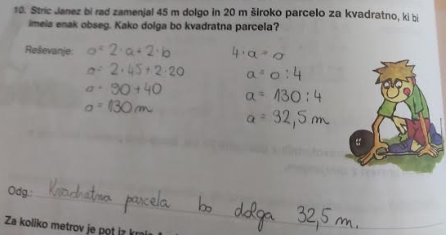 10. Stric Janez bi rad zamenjal 45 m dolgo in 20 m široko parcelo za kvadratno, ki bi
imela enak obseg. Kako dolga bo kvadratna parcela?
Reševanje: o = 2·a + 2·b
o = 2·45 + 2·20
o = 90 + 40
o = 130 m
4·a = o
a = o : 4
a = 130 : 4
a = 32,5 m
Odg.: Kvadratna parcela bo dolga 32,5 m.
Za koliko metrov je pot iz